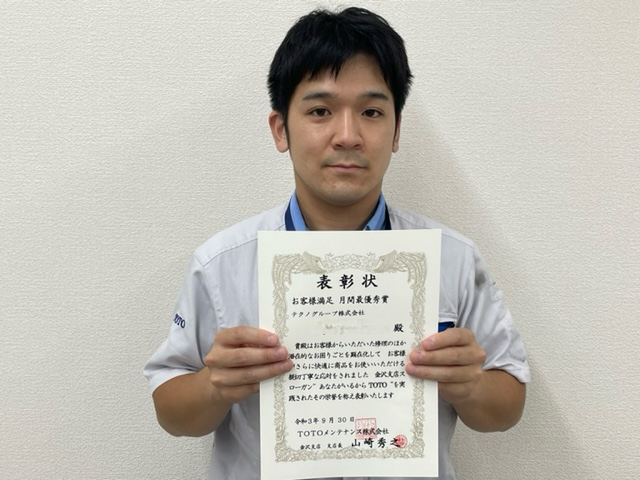 TOTO
表彰状
お客様満足 月間最優秀賞
テクノグループ株式会社
殿
貴殿はお客様からいただいた修理のほか
潜在的なお困りごとを顕在化して お客様
さらに快適に商品をお使いいただける
親切丁寧な応対をされました 金沢支店ス
ローガン”あなたがいるからTOTO”を実
践されたその栄誉を称え表彰いたします
令和3年9月30日
TOTOメンテナンス株式会社
金沢支店 支店長 山崎秀之